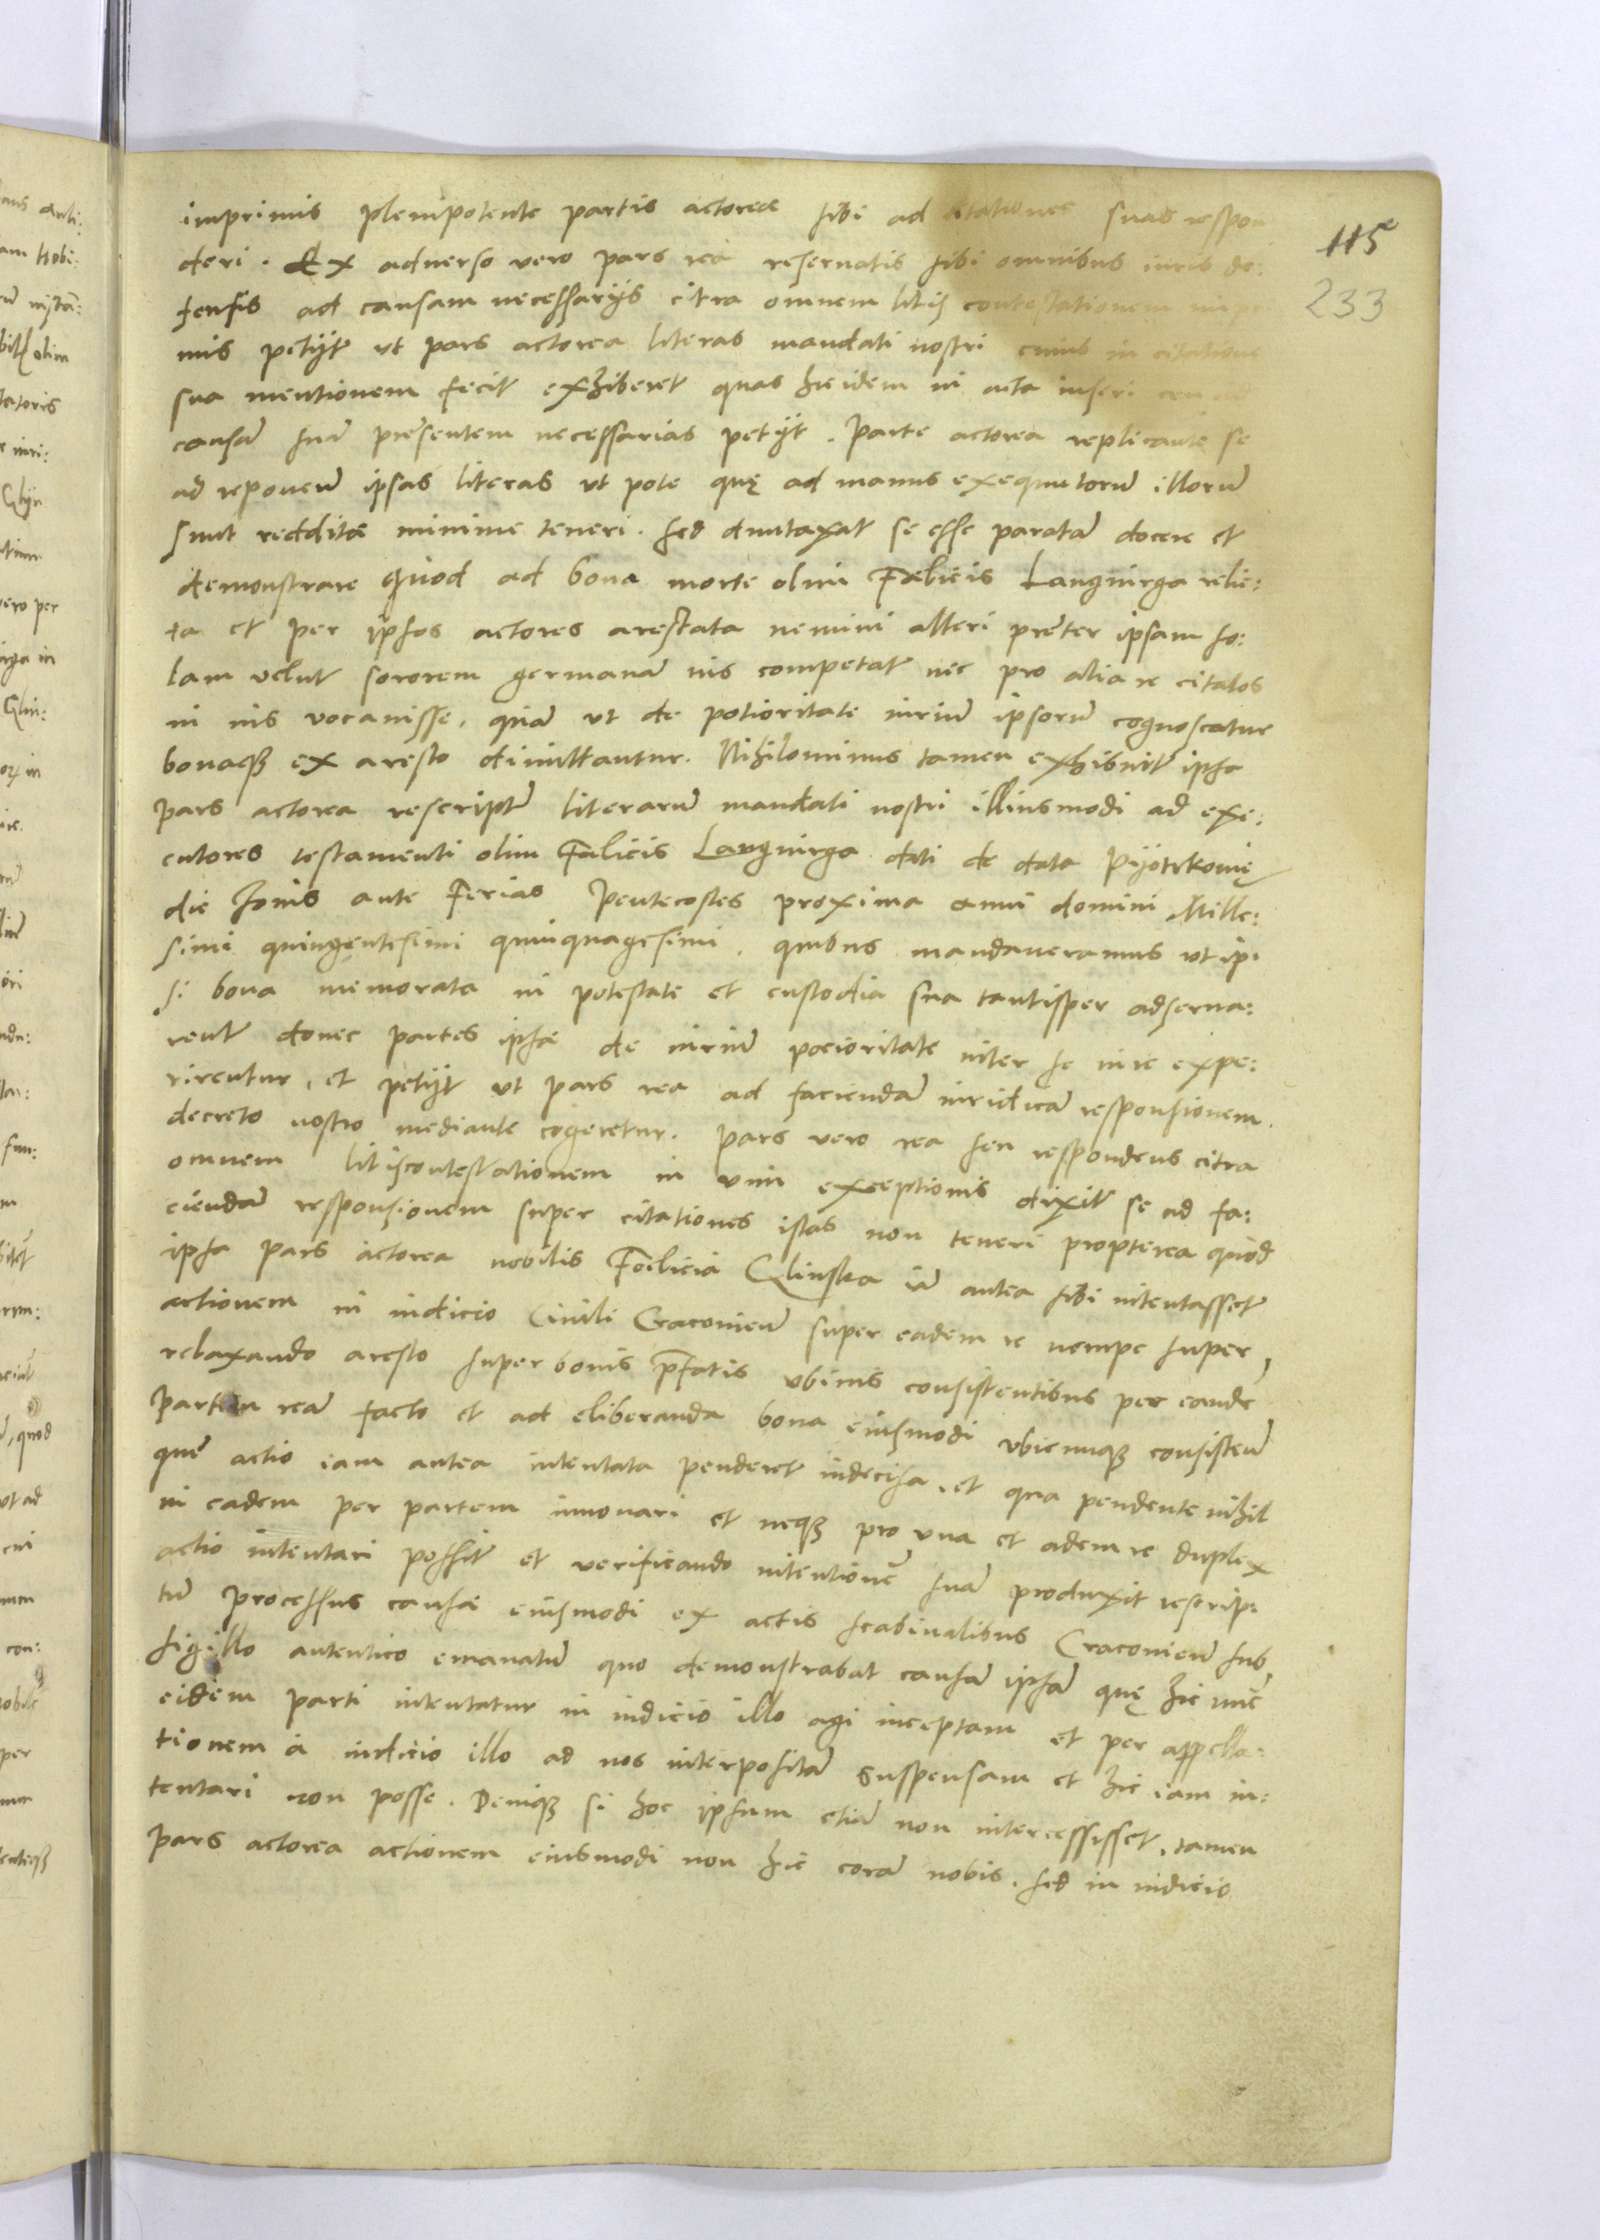 imprimis plenipotente partis actoreæ sibi ad citationes suas respon
deri. Ex aduerso vero pars rea reseruatis sibi omnibus iuris de:
fensis ad causam necessarijs citra omnem litis contestationem inpri
mis petijt vt pars actorea literas mandati nostri cuius in citatione
sua mentionem fecit exhiberet quas hic idem in acta inseri ceu ad
causã suã presentem necessarias petijt. Parte actorea replicante se
ad reponeñ ipsas literas vt pote quę ad manus exequutorũ illorũ
sunt redditæ minime teneri. sed duntaxat se esse paratã docere et
demonstrare quod ad bona morte olim Fælicis Langnirga relic:
ta et per ipsos actores arestata nemini alteri preter ipsam so:
lam velut sororem germanã ius competat nec pro alia re citatos
in ius vocauisse, quã vt de potioritate iuriũ ipsorũ cognoscatur
bonaq3 ex aresto dimittantur. Nihilominus tamen exhibuit ipsa
pars actorea rescriptũ literarũ mandati nostri illiusmodi ad exe:
cutores testamenti olim Fælicis Langnirga dati de data Pijotrkouię
die Jouis ante Ferias Pentecostes proxima anni domini Mille:
simi quingentesimi quinquagesimi, quibus mandaueramus vt ip:
si bona memorata in potestate et custodia sua tantisper adserua:
rent donec partes ipsæ de iuriũ pocioritate inter se iure expe:
rirentur, et petijt vt pars rea ad faciendã iuridicã responsionem
decreto nostro mediante cogeretur. Pars vero rea seu respondens citra
omnem litiscontestationem in vim exceptionis dixit se ad fa:
ciendã responsionem super citationes istas non teneri propterea quod
ipsa pars actorea nobilis Fœlicia Glinska iã antea sibi intentasset
actionem in iudicio Ciuili Cracouieñ super eadem re nempe super
relaxando aresto super bonis p̃fatis vbiuis consistentibus per eandẽ
partem reã facto et ad eliberanda bona eiusmodi vbicunq3 consisteñ
quẽ actio iam antea intentata penderet indecisa, et qua pendente nihil
in eadem per partem innouari et neq3 pro vna et adem re duplex
actio intentari possit et verificando intentionẽ suã produxit rescrip:
tũ processus causæ eiusmodi ex actis scabinalibus Cracouieñ sub
sigillo autentico emanatũ quo demonstrabat causã ipsã quę hic nũc
eidem parti intentatur in iudicio illo agi inceptam et per appella:
tionem à iudicio illo ad nos interpositã suspensam et hic iam in:
tentari non posse. Deniq3 si hoc ipsum etiã non intercessisset, tamen
pars actorea actionem eiusmodi non hic corã nobis, sed in iudicio
115
233